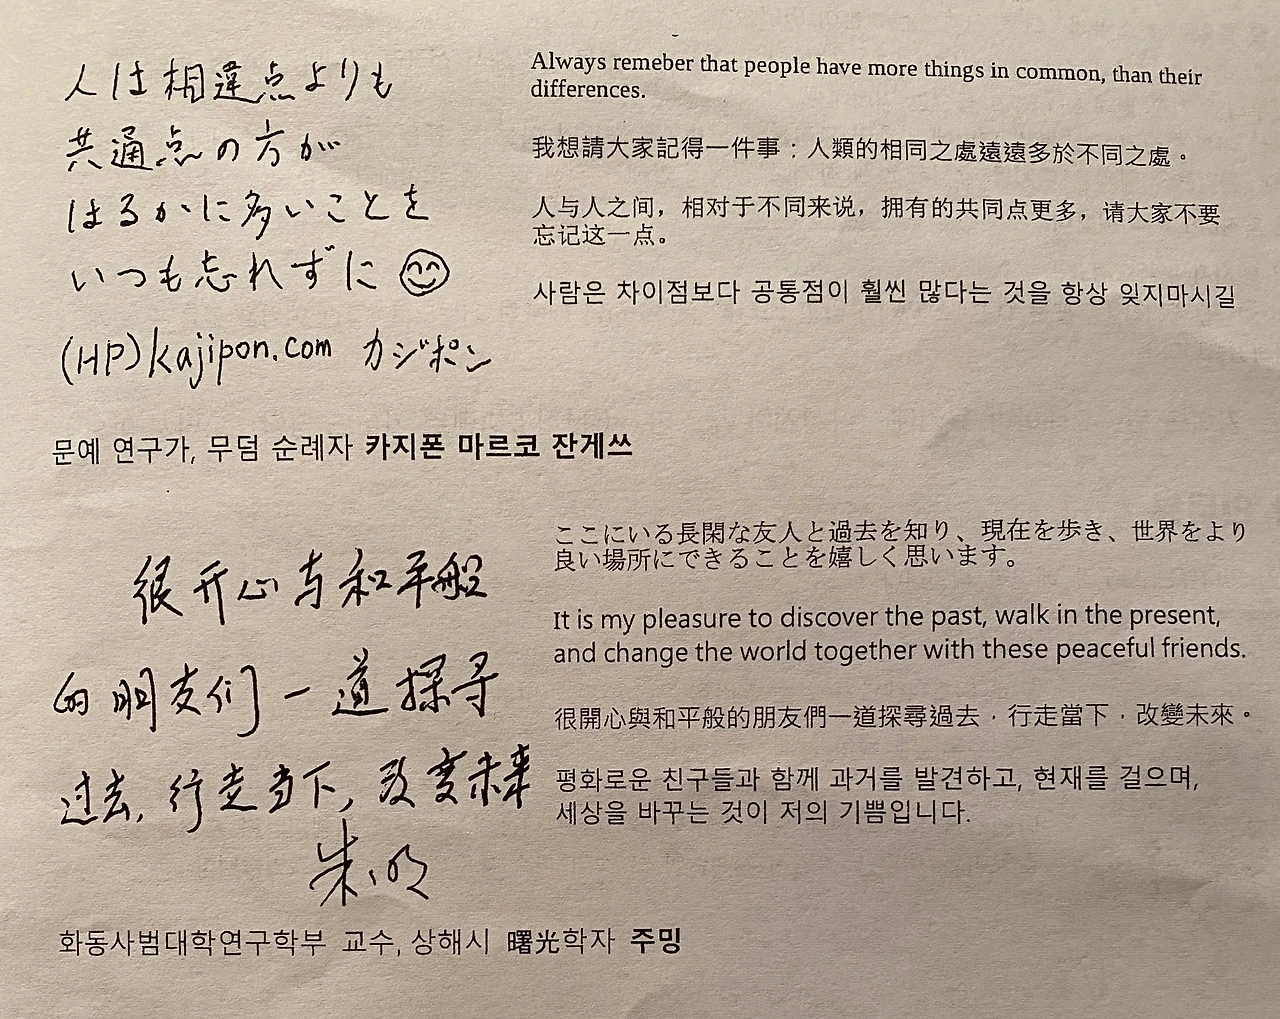 人は相違点よりも
共通点の方が
はるかに多いことを
いつも忘れずに
(HP)kajipon.com カジポン
Always remeber that people have more things in common, than their
differences.
我想請大家記得一件事：人類的相同之處遠遠多於不同之處。
人与人之间，相对于不同来说，拥有的共同点更多，请大家不要
忘记这一点。
사람은 차이점보다 공통점이 훨씬 많다는 것을 항상 잊지마시길
문예 연구가, 무덤 순례자 카지폰 마르코 잔게쓰
很开心与和平船
的朋友们一道探寻
过去,行走当下,改变未来
朱明
ここにいる長閑な友人と過去を知り、現在を歩き、世界をより
良い場所にできることを嬉しく思います。
It is my pleasure to discover the past, walk in the present,
and change the world together with these peaceful friends.
很開心與和平般的朋友們一道探尋過去，行走當下，改變未來。
평화로운 친구들과 함께 과거를 발견하고, 현재를 걸으며,
세상을 바꾸는 것이 저의 기쁨입니다.
화동사범대학연구학부 교수, 상해시 曙光학자 주밍